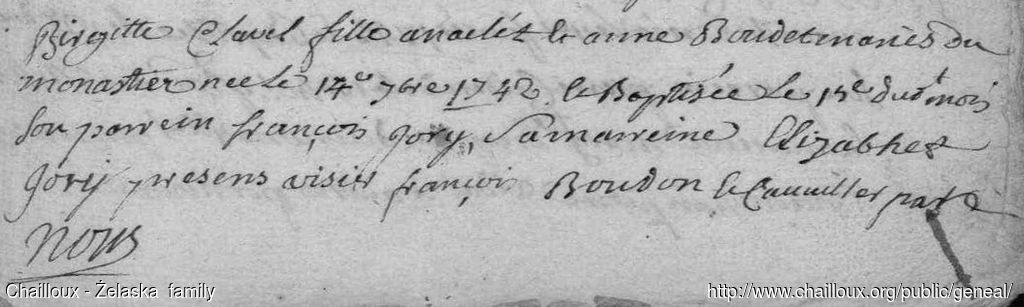 Birgitte Clavel fille anaclét & anne Boudet mariés du
monastier nee le 14e 7bre 1742 & Baptisée le 15e dudt mois
son parrein françois Jory, Sa marreine Elizabhet
Jory presens vissir françois Boudon & Cavailler par
Nous
Chailloux - Želaska family
http://www.chailloux.org/public/geneal/